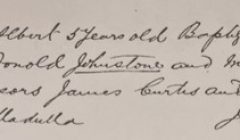 Albert 5 years old Bapt
Donald Johnstone and M
sors James Curtis and
lladulla J